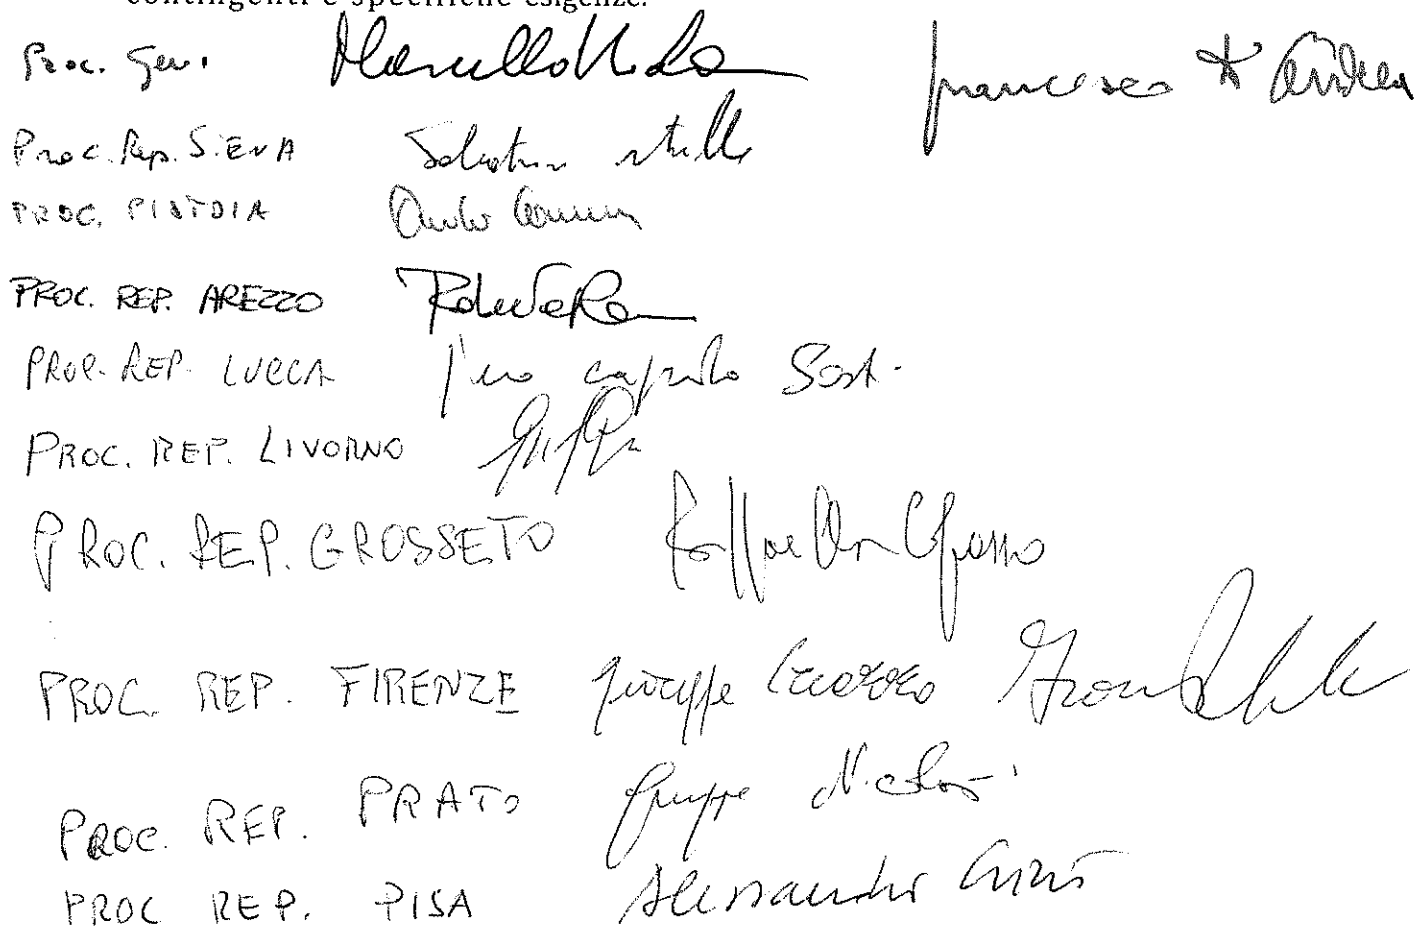 contingenti e specifiche esigenze.
Proc. Gen. Marcello Viola Francesco D'Andrea
Proc. Rep. SIENA Salvatore Vitello
PROC. PISTOIA Paolo Canessa
PROC. REP. AREZZO Roberto Rossi
PROC. REP. LUCCA Piero Capizzoto Sost.
PROC. REP. LIVORNO
PROC. REP. GROSSETO Raffaella Capasso
PROC. REP. FIRENZE Giuseppe Creazzo
PROC. REP. PRATO Giuseppe Nicolosi
PROC REP. PISA Alessandro Crini